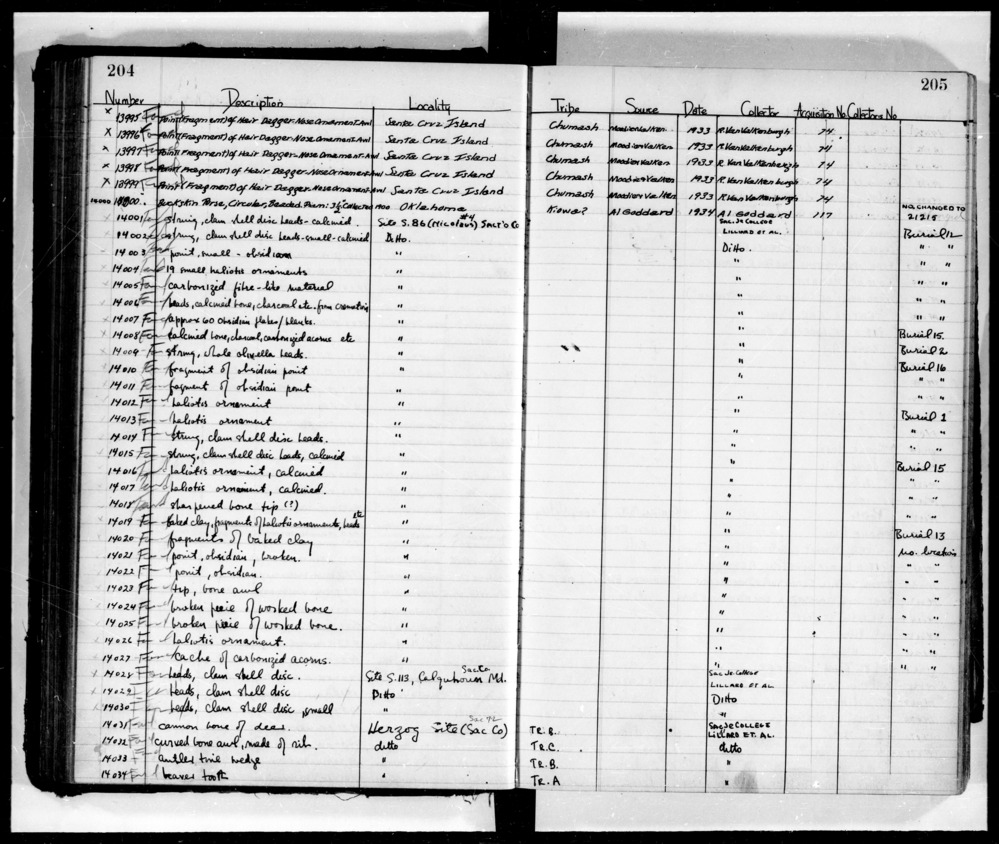 204
205
Number Description Locality Tribe Source Date Collector Acquisition No. Collectors No
x 13995 Point (Fragment) of Hair Dagger-Nose Ornament-Awl Santa Cruz Island Chumash 1933 R. Van Valkenburgh 74
x 13996 Point (Fragment) of Hair Dagger-Nose Ornament-Awl Santa Cruz Island Chumash 1933 R. Van Valkenburgh 74
x 13997 Point (Fragment) of Hair Dagger-Nose Ornament-Awl Santa Cruz Island Chumash 1933 R. Van Valkenburgh 74
x 13998 Point (Fragment) of Hair Dagger-Nose Ornament-Awl Santa Cruz Island Chumash 1933 R. Van Valkenburgh 74
x 13999 Point (Fragment) of Hair Dagger-Nose Ornament-Awl Santa Cruz Island Chumash 1933 R. Van Valkenburgh 74
14000 Buckskin Purse, Circular, Beaded. Oklahoma Kiowa? Al Goddard 1934 Al Goddard 117 NO. CHANGED TO 21215
14001 string, clam shell disc beads-calcined. Site S. 86 (Nicolaus) #4 Sac'to Co Sac. Jr. College Lillard et al. Burial 12
14002 string, clam shell disc beads-small-calcined Ditto. Ditto " "
14003 point, small - obsidian " " " "
14004 19 small haliotis ornaments " " " "
14005 carbonized fibre-like material " " " "
14006 beads, calcined bone, charcoal etc. from cremation " " " "
14007 approx 60 obsidian flakes/blanks. " " " "
14008 calcined bone, charcoal, carbonized acorns etc " " Burial 15.
14009 string, whole olivella beads. " " Burial 2
14010 fragment of obsidian point " " Burial 16
14011 fragment of obsidian point " " " "
14012 haliotis ornament " "
14013 haliotis ornament " " Burial 1
14014 string, clam shell disc beads. " " " "
14015 string, clam shell disc beads, calcined " " " "
14016 haliotis ornament, calcined " " Burial 15
14017 haliotis ornament, calcined. " " " "
14018 sharpened bone tip (?) " " " "
14019 baked clay, fragments of haliotis ornaments, beads etc " " " "
14020 fragments of baked clay " " Burial 13
14021 point, obsidian, broken. " " no. location
14022 point, obsidian. " " " "
14023 tip, bone awl " " " "
14024 broken piece of worked bone " " " "
14025 broken piece of worked bone. " " " "
14026 haliotis ornament. " " " "
14027 cache of carbonized acorns. " " " "
14028 beads, clam shell disc. Site S. 113, Calquhoun Md. Sac. Co. Sac Jr. College Lillard et al
14029 beads, clam shell disc Ditto Ditto
14030 beads, clam shell disc, small " "
14031 cannon bone of deer. Herzog Site (Sac Co) TR. B. Sac Jr College Lillard et. al.
14032 curved bone awl, made of rib. ditto TR. C. ditto
14033 antler tine wedge " TR. B. "
14034 beaver tooth " TR. A "